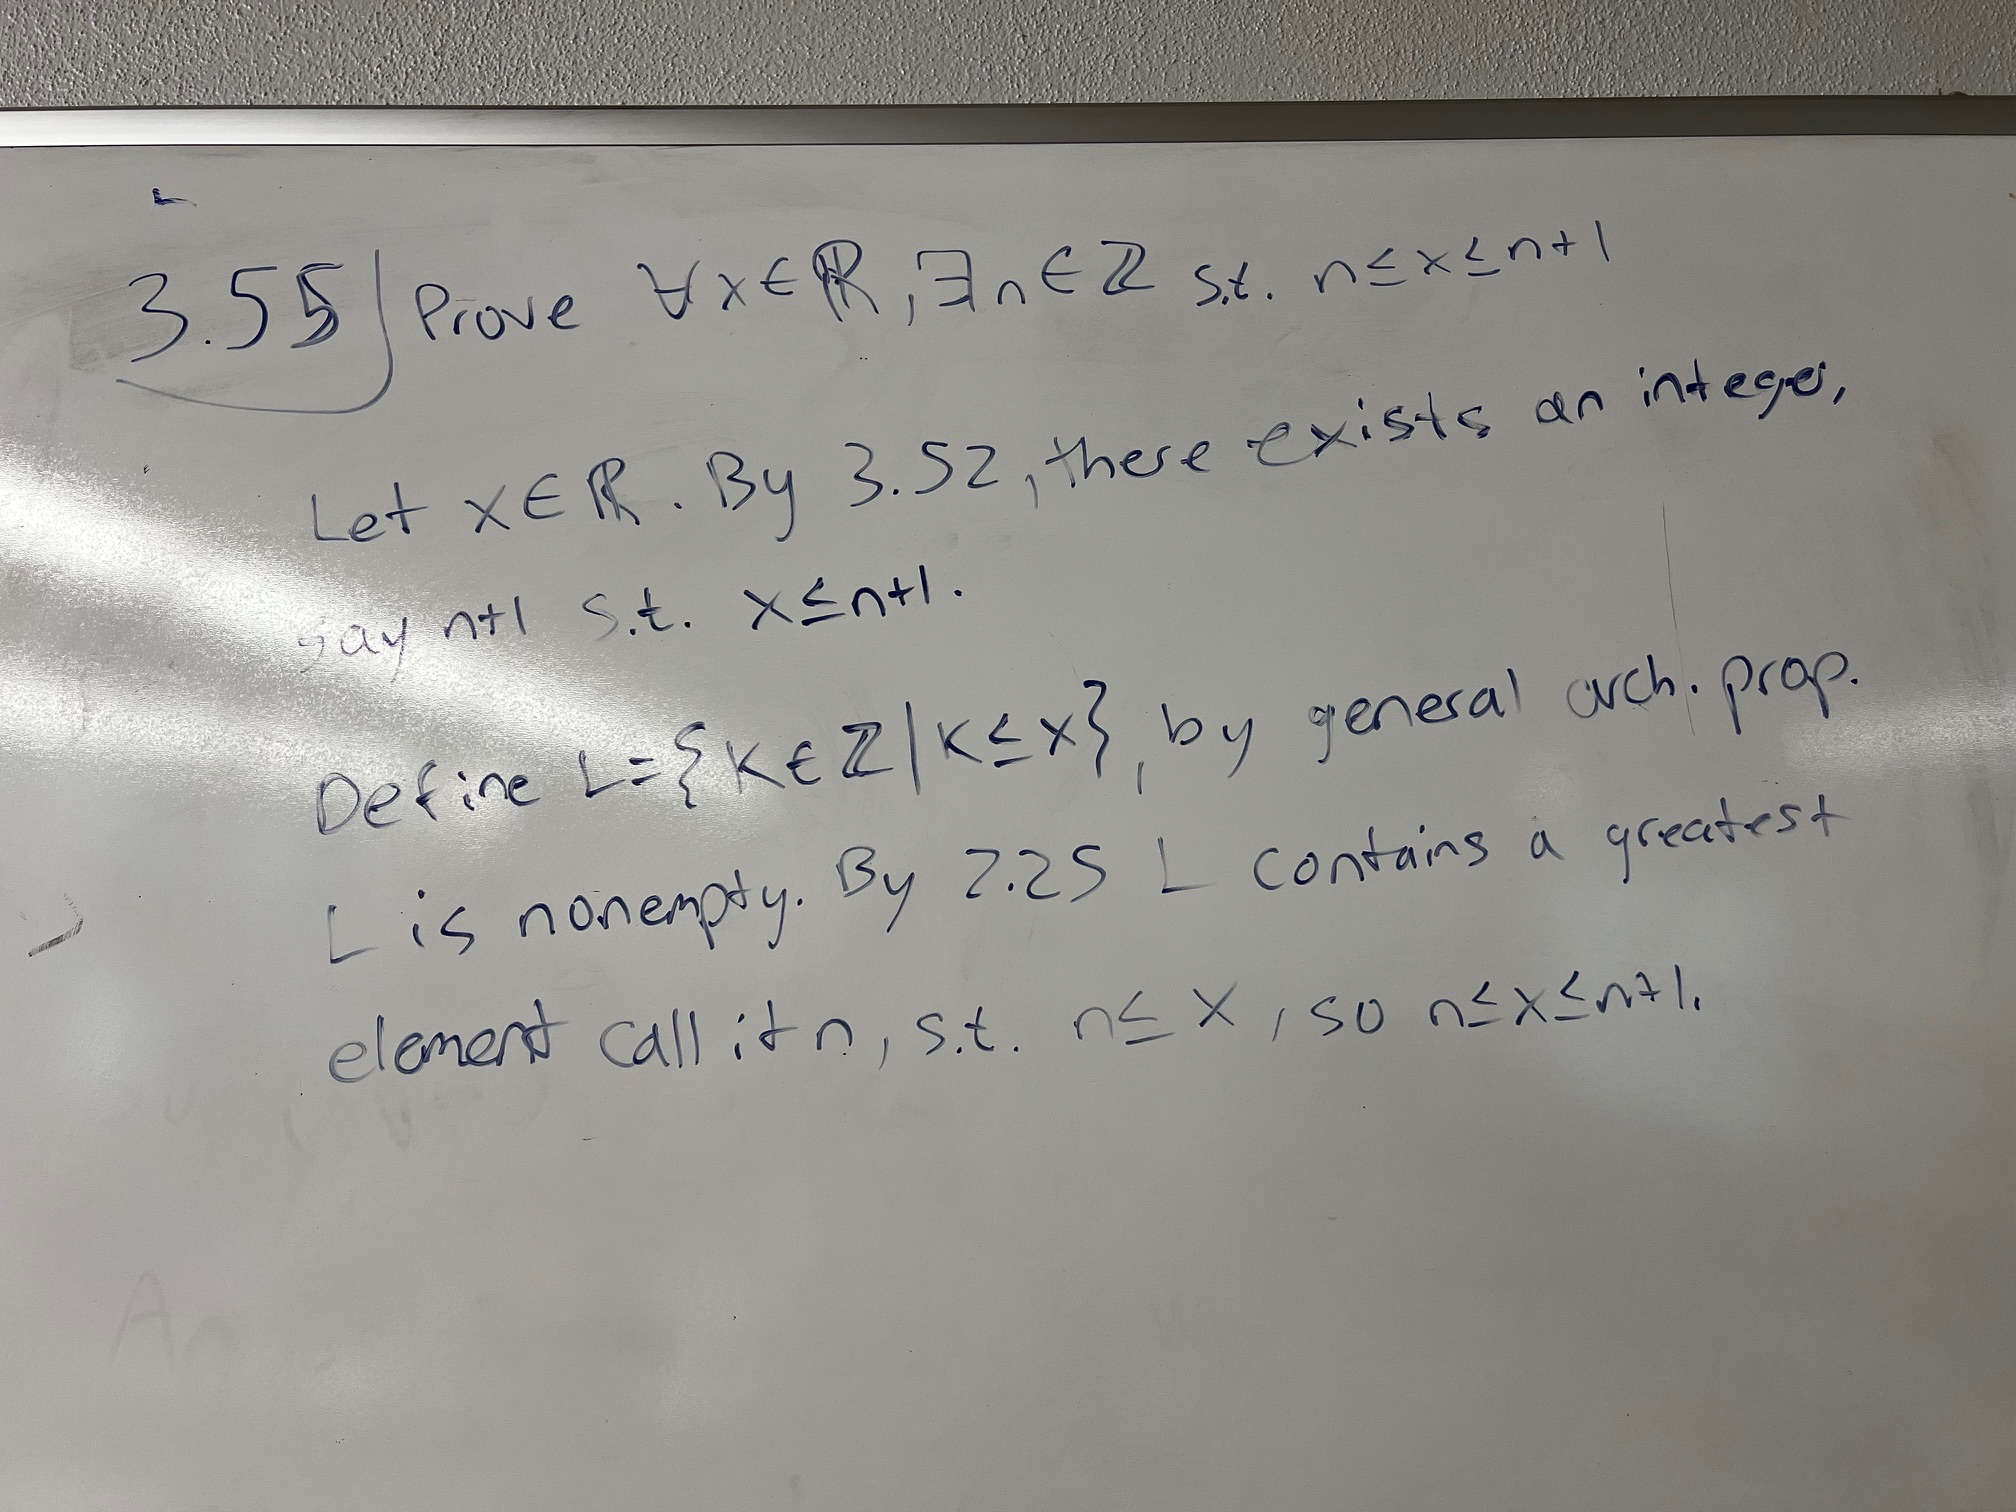 3.55) Prove ∀x∈ℝ, ∃n∈ℤ s.t. n≤x≤n+1
Let x∈ℝ. By 3.52, there exists an integer,
say n+1 s.t. x≤n+1.
Define L={K∈ℤ|K≤x}, by general arch. prop.
L is nonempty. By 2.25 L contains a greatest
element call it n, s.t. n≤x, so n≤x≤n+1.